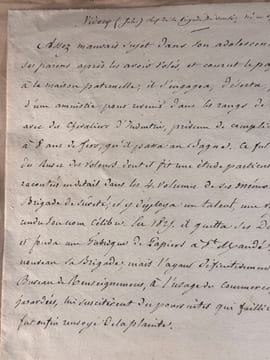 Vidocq (Jules) chef de la brigade de sureté, né a
Assez mauvais sujet dans son adolescen
ses parens après les avoir volés, et courut le p
a la maison paternelle; il s'engagea, déserta,
d'une amnistie pour revenir dans les rangs de
avec des Chevaliers d'Industrie, prévenu de complic
a 8 ans de fers, qu'il passa au Bagne. Ce fut
des Ruses des Voleurs, dont il fit une étude particuliere
racontés au détail dans les 4 volumes de ses Mémo
Brigade de Sureté, et y déploya un talent, une
rendu son nom célèbre. En 1825. il quitta ses
et fonda une Fabrique de Papiers à St. Mandé,
nouveau sa Brigade; mais l'ayant définitivement
Bureau de Renseignemens, à l'usage du Commerce
lui suscitèrent des poursuites qui failli
fut enfin renvoyé de la plainte.